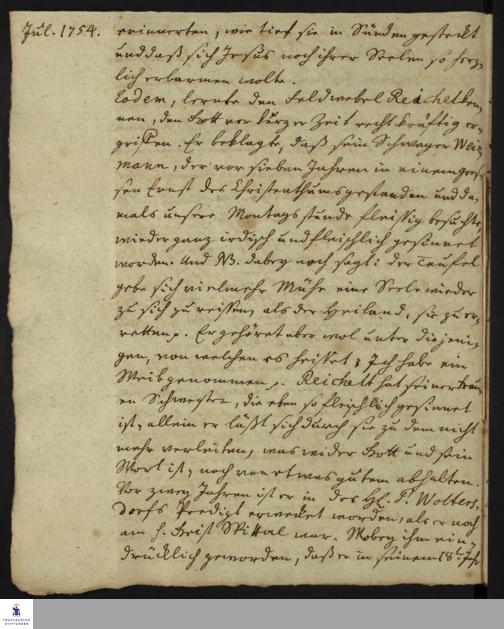 Jul. 1754.
erinnerten, wie tief sie in Sünden gesteckt
und daß sich Jesus noch ihrer Seelen so herz-
lich erbarmen wolte.
Eodem, lernte den Feldwebel Reichelt ken-
nen, den Gott vor kurzer Zeit recht kräftig er-
griffen. Er beklagte, daß sein Schwager Wein-
mann, der vor sieben Jahren in einem gros-
sen Ernst des Christenthums gestanden und da-
mals unsere Montags stunde fleissig besuchte,
wieder ganz irdisch und fleischlich gesinnet
worden. Und NB. dabey noch sagt: der Teufel
gebe sich vielmehr Mühe eine Seele wieder
zu sich zu reissen, als der Heiland, sie zu er-
retten. Er gehöret aber wol unter diejeni-
gen, von welchen es heisset: Ich habe ein
Weib genommen. Reichelt hat seiner Frau-
en Schwester, die eben so fleischlich gesinnet
ist, allein er läßt sich durch sie zu dem nicht
mehr verleiten, was wider Gott und sein
Wort ist, noch von etwas gutem abhalten.
Vor zwey Jahren ist er in des H. P. Wolters-
dorfs Predigt erwecket worden, als er noch
am h. Geist Spittal war. Wobey ihm ein-
drücklich geworden, daß er in seinem 18t. Jahr
FRANCKESCHE
STIFTUNGEN